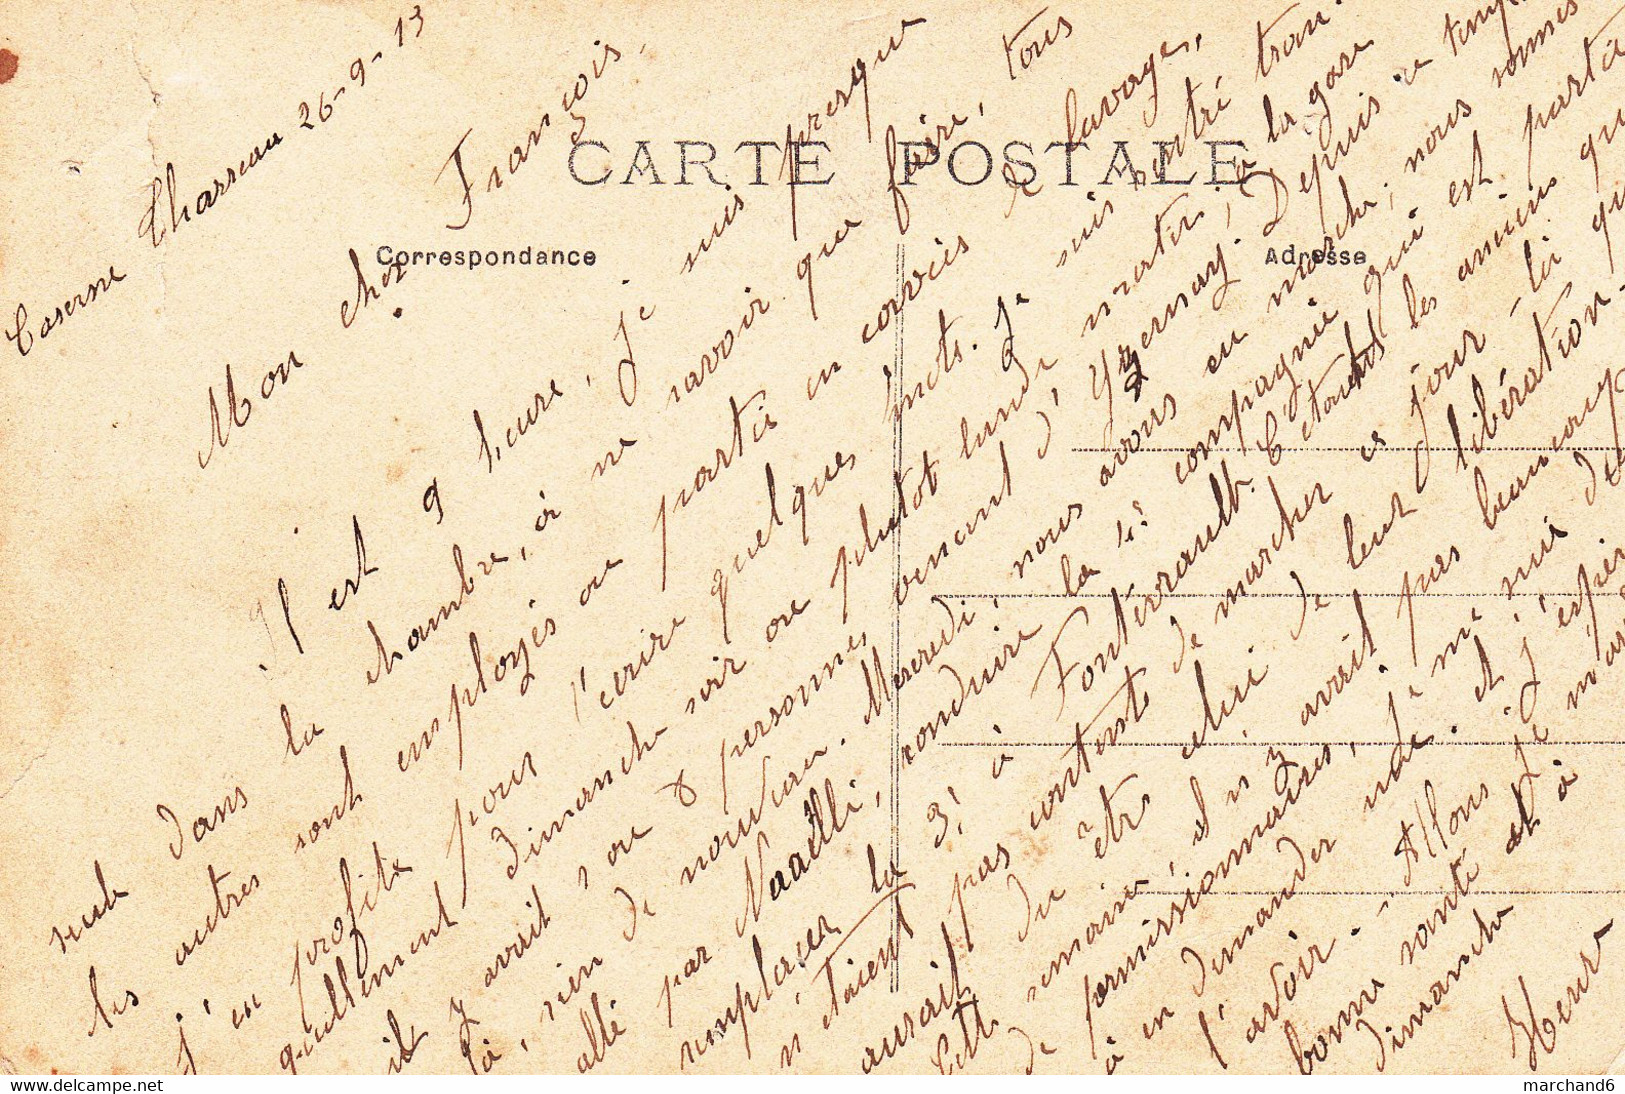 Caserne Charreau 26-9-13
Mon cher François,
Il est 9 heure, je suis presque
seule dans la chambre, à ne savoir que faire, tous
les autres sont employés ou partis en corvées de lavage,
j'en profite pour t'écrire quelques mots. Je suis rentré tran-
quillement dimanche soir ou plutot lundi matin, à la gare
il y avait 7 ou 8 personnes venant d'Yzernay. Depuis ce temps
là, rien de nouveau. Mercredi, nous avons eu marche, nous sommes
allé par conduire la 4e compagnie qui est partie
remplacer la 3e à Fontevrault. C'étaient les anciens qui
n'étaient pas contents de marcher ce jour-là qui
aurait du être celui de leur libération.
Cette semaine, il n'y avait pas beaucoup
de permissionnaires, je me suis
à en demander une et j'espère
l'avoir. - Allons, je
bonne santé et à
dimanche
Henr
CARTE POSTALE
Correspondance
Adresse
marchand6